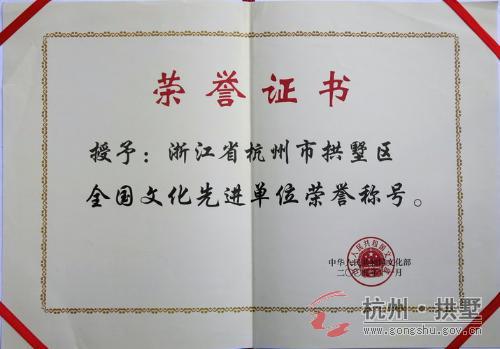 荣誉证书
授予：浙江省杭州市拱墅区
全国文化先进单位荣誉称号。
中华人民共和国文化部
杭州·拱墅
www.gongshu.gov.cn